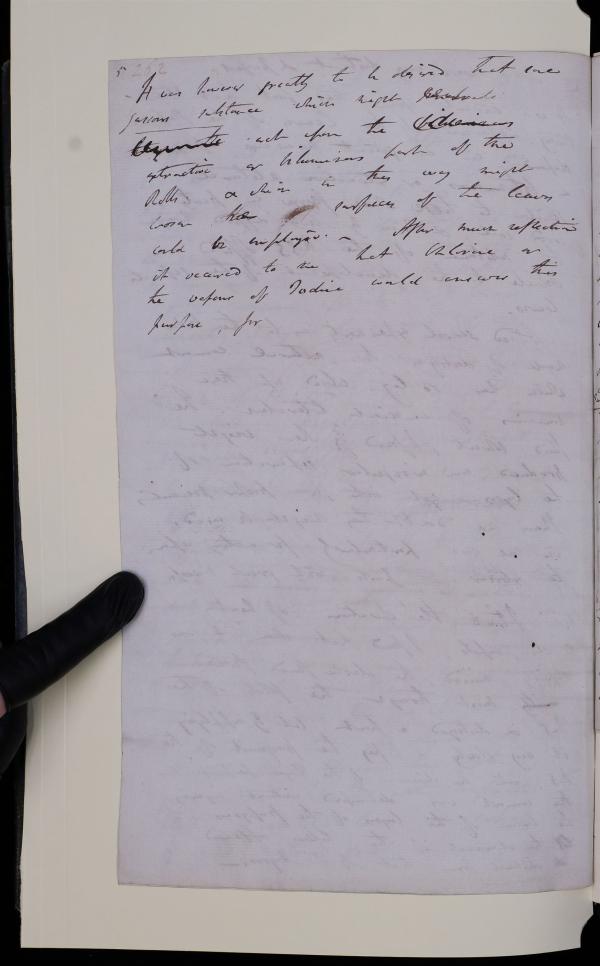 5
- It was however greatly to be desired that some
gaseous substance which might
act upon the
extractive or bituminous part of the
Rolls & which in this way might
loosen surfaces of the leaves
could be employed. - After much reflection
it occurred to me that Chlorine or
the vapour of Iodine would answer this
purpose, for